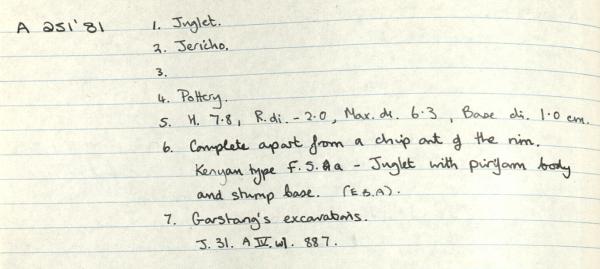 A 251'81 1. Juglet.
2. Jericho.
3.
4. Pottery.
5. H. 7.8, R.di. - 2.0, Max. di. 6.3, Base di. 1.0 cm.
6. Complete apart from a chip out of the rim.
Kenyan type F.S. a - Juglet with piriform body
and stump base. (E.B.A).
7. Garstang's excavations.
J. 31. A IV. w1. 887.